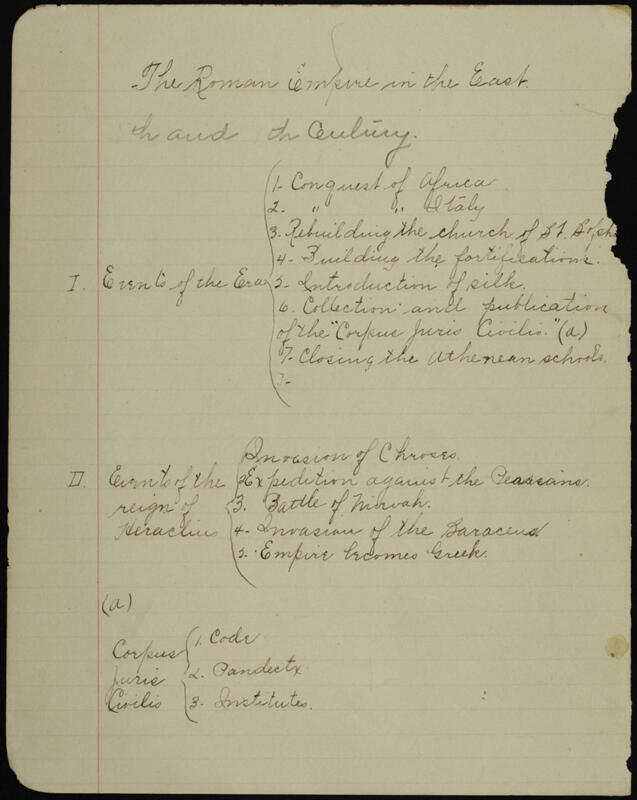 The Roman Empire in the East.
th and th Century.
1- Conquest of Africa
2- " " Italy
3. Rebuilding the church of St. Soph
4- Building the fortifications.
I. Events of the Era 5- Introduction of silk.
6. Collection and publication
of the "Corpus Juris Civilis." (a)
7- Closing the Athenean schools.
?-
Invasion of Chroses.
II. Events of the 2 Expedition against the Peassians.
reign of 3. Battle of Ninvah.
Heraclius 4- Invasion of the Saracens.
5. Empire becomes Greek.
(a)
Corpus 1. Code
Juris 2. Pandects
Civilis 3- Institutes.